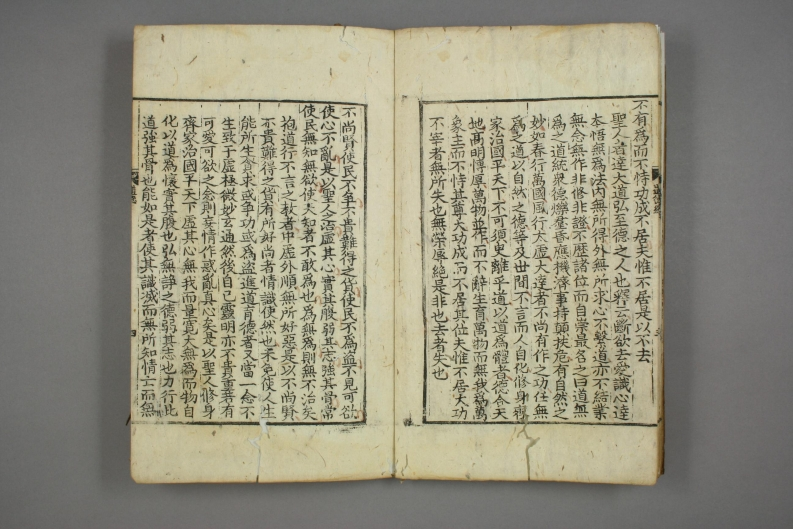 不有為而不恃功成不居夫惟不居是以不去
聖人者達大道弘至德之人也釋云斷欲去愛識心達
本悟無為法內無所得外無所求心不繫道亦不結業
無念無作非修非證不歷諸位而自崇最名之曰道無
為之道統衆德爍羣昏應機濟事持顚扶危有自然之
妙如春行萬國風行太虛大達者不尚有作之功任無
為之道以自然之德等及世間不言而人自化修身
家治國平天下不可須臾離乎道以道為體者德合天
地高明博厚萬物並作而不辭生育萬物而無我為萬
象主而不恃其尊大功成而不居其位夫惟不居大功
不宰者無所失也無榮辱絶是非也去者失也
不尚賢使民不爭不貴難得之貨使民不為盜不見可欲
使心不亂是以聖人治虛其心實其腹弱其志強其骨常
使民無知無欲使夫知者不敢為也為無為則無不治矣
抱道行不言之敎者中虛外順無所好惡是以不尚賢
不貴難得之貨有所好尚者情識使然也柔免使人生
能所生貪求或爭功或為盜進道育德者又當一念不
生致乎虛極微妙玄通然後自己靈明亦不貴重若有
可愛可欲之念則妄情作惑亂真心矣是以聖人修身
齊家治國平天下虛其心無我而量寬大無為而物自
化以道為懷實其腹也弘無諍之德弱其志也力行此
道強其骨也能如是者使其識滅而無所知情亡而無